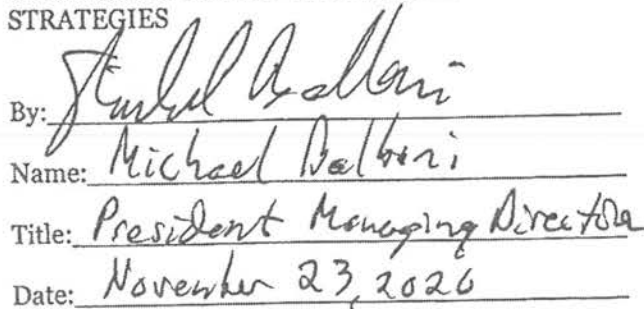 STRATEGIES
By:
Name: Michael Balboni
Title: President Managing Director
Date: November 23, 2020